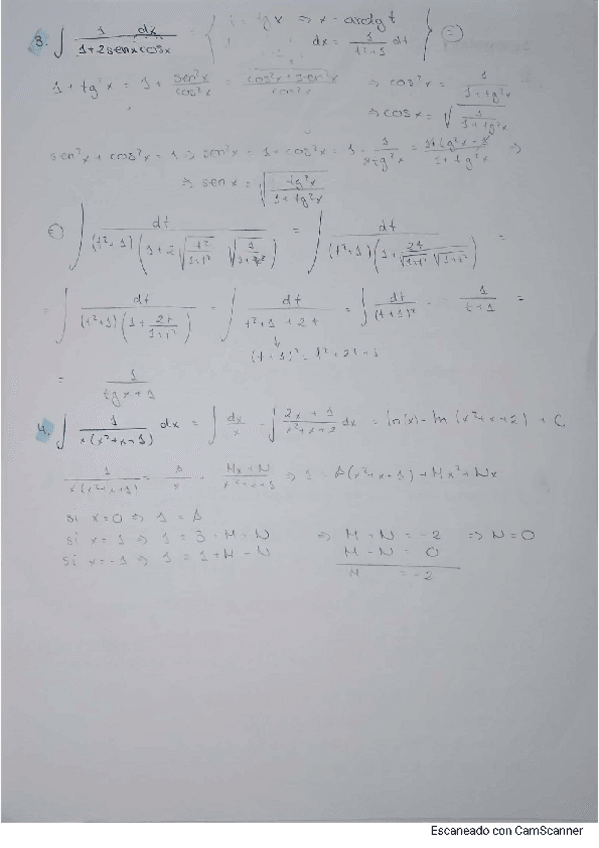 3. ∫ 1 dx / (1+2senxcosx) = { t = tg x ⇒ x = arctg t
dx = 1/(t²+1) dt } =
1 + tg²x = 1 + sen²x/cos²x = (cos²x + sen²x)/cos²x ⇒ cos²x = 1/(1+tg²x)
⇒ cosx = √(1/(1+tg²x))
sen²x + cos²x = 1 ⇒ sen²x = 1 - cos²x = 1 - 1/(1+tg²x) = (1+tg²x-1)/(1+tg²x) ⇒
⇒ senx = √(tg²x/(1+tg²x))
= ∫ dt / ((t²+1)(1+2√(t²/(1+t²)) √(1/(1+t²)))) = ∫ dt / ((t²+1)(1+2t/(√(1+t²) √(1+t²)))) =
= ∫ dt / ((t²+1)(1+2t/(1+t²))) = ∫ dt / (t²+1+2t) = ∫ dt/(t+1)² = 1/(t+1) =
(t+1)² = t²+2t+1
= 1/(tgx+1)
4. ∫ 1/(x(x²+x+1)) dx = ∫ dx/x - ∫ (2x+1)/(x²+x+2) dx = ln(x) - ln(x²+x+2) + C
1/(x(x²+x+1)) = A/x + (Mx+N)/(x²+x+1) ⇒ 1 = A(x²+x+1)+Mx²+Nx
si x=0 ⇒ 1 = A
si x=1 ⇒ 1 = 3+M+N ⇒ M+N = -2 ⇒ N=0
si x=-1 ⇒ 1 = 1+M-N M-N = 0
M = -2
Escaneado con CamScanner